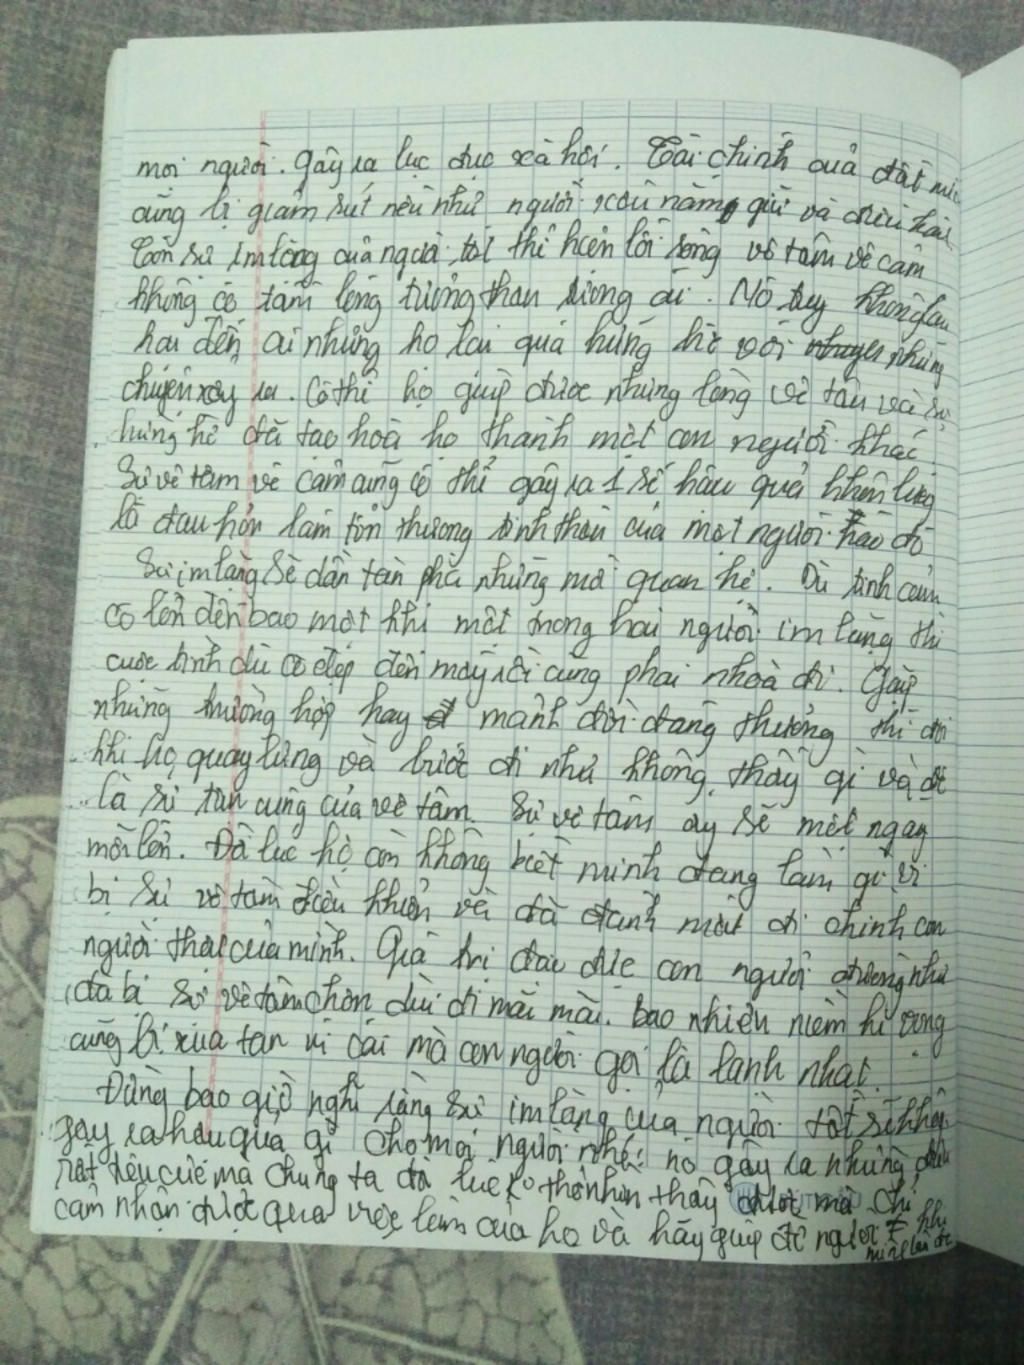 mọi người. Gây ra lục đục xã hội. Tài chính của đất nước
cũng bị giảm sút nếu như người xấu nắm giữ và điều hành
Còn sự im lặng của người tốt thể hiện lối sống vô tâm vô cảm
không có tấm lòng tương thân tương ái. Nó tuy không làm
hại đến ai nhưng họ lại quá hững hờ với những
chuyện xảy ra. Có thể họ giúp được nhưng lòng vô tâm và sự
hững hờ đã tạo hoá họ thành một con người khác
Sự vô tâm vô cảm cũng có thể gây ra 1 số hậu quả khôn lường
là đau hơn làm tổn thương tinh thần của một người nào đó
Sự im lặng sẽ dần tàn phá những mối quan hệ. Dù tình cảm
có lớn đến bao một khi một trong hai người im lặng thì
cuộc tình dù có đẹp đến mấy rồi cũng phai nhoà đi. Gặp
những trường hợp hay mảnh đời đáng thương thì đôi
khi họ quay lưng và bước đi như không thấy gì và đó
là sự tận cùng của vô tâm. Sự vô tâm ấy sẽ một ngày
một lớn. Đã lúc họ còn không biết mình đang làm gì vì
bị sự vô tâm điều khiển và đã đánh mất đi chính con
người thật của mình. Giá trị đạo đức con người dường như
đã bị sự vô tâm chôn vùi đi mãi mãi. bao nhiêu niềm hi vọng
cũng bị xua tan vì cái mà con người gọi là lạnh nhạt.
Đừng bao giờ nghĩ rằng sự im lặng của người tốt sẽ không
gây ra hậu quả gì cho mọi người nhé! nó gây ra những điều
rất tiêu cực mà chúng ta đã lúc ko thể nhìn thấy được mà chỉ
cảm nhận được qua việc làm của họ và hãy giúp đỡ người # khi
mình làm đc